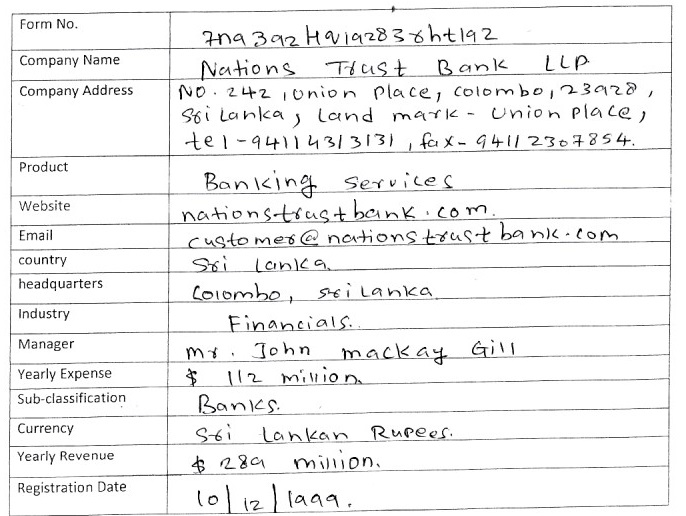 Form No. 7na3a2Hq192838ht192
Company Name Nations Trust Bank LLP
Company Address NO. 242, Union Place, Colombo, 23928,
Sri Lanka, Land mark - Union Place,
tel-94114313131, fax-94112307854.
Product Banking Services
Website nationstrustbank.com.
Email customer@nationstrustbank.com
country Sri Lanka.
headquarters Colombo, Sri Lanka
Industry Financials.
Manager Mr. John Mackay Gill
Yearly Expense $ 112 million.
Sub-classification Banks.
Currency Sri Lankan Rupees.
Yearly Revenue $ 289 million.
Registration Date 10/12/1999.